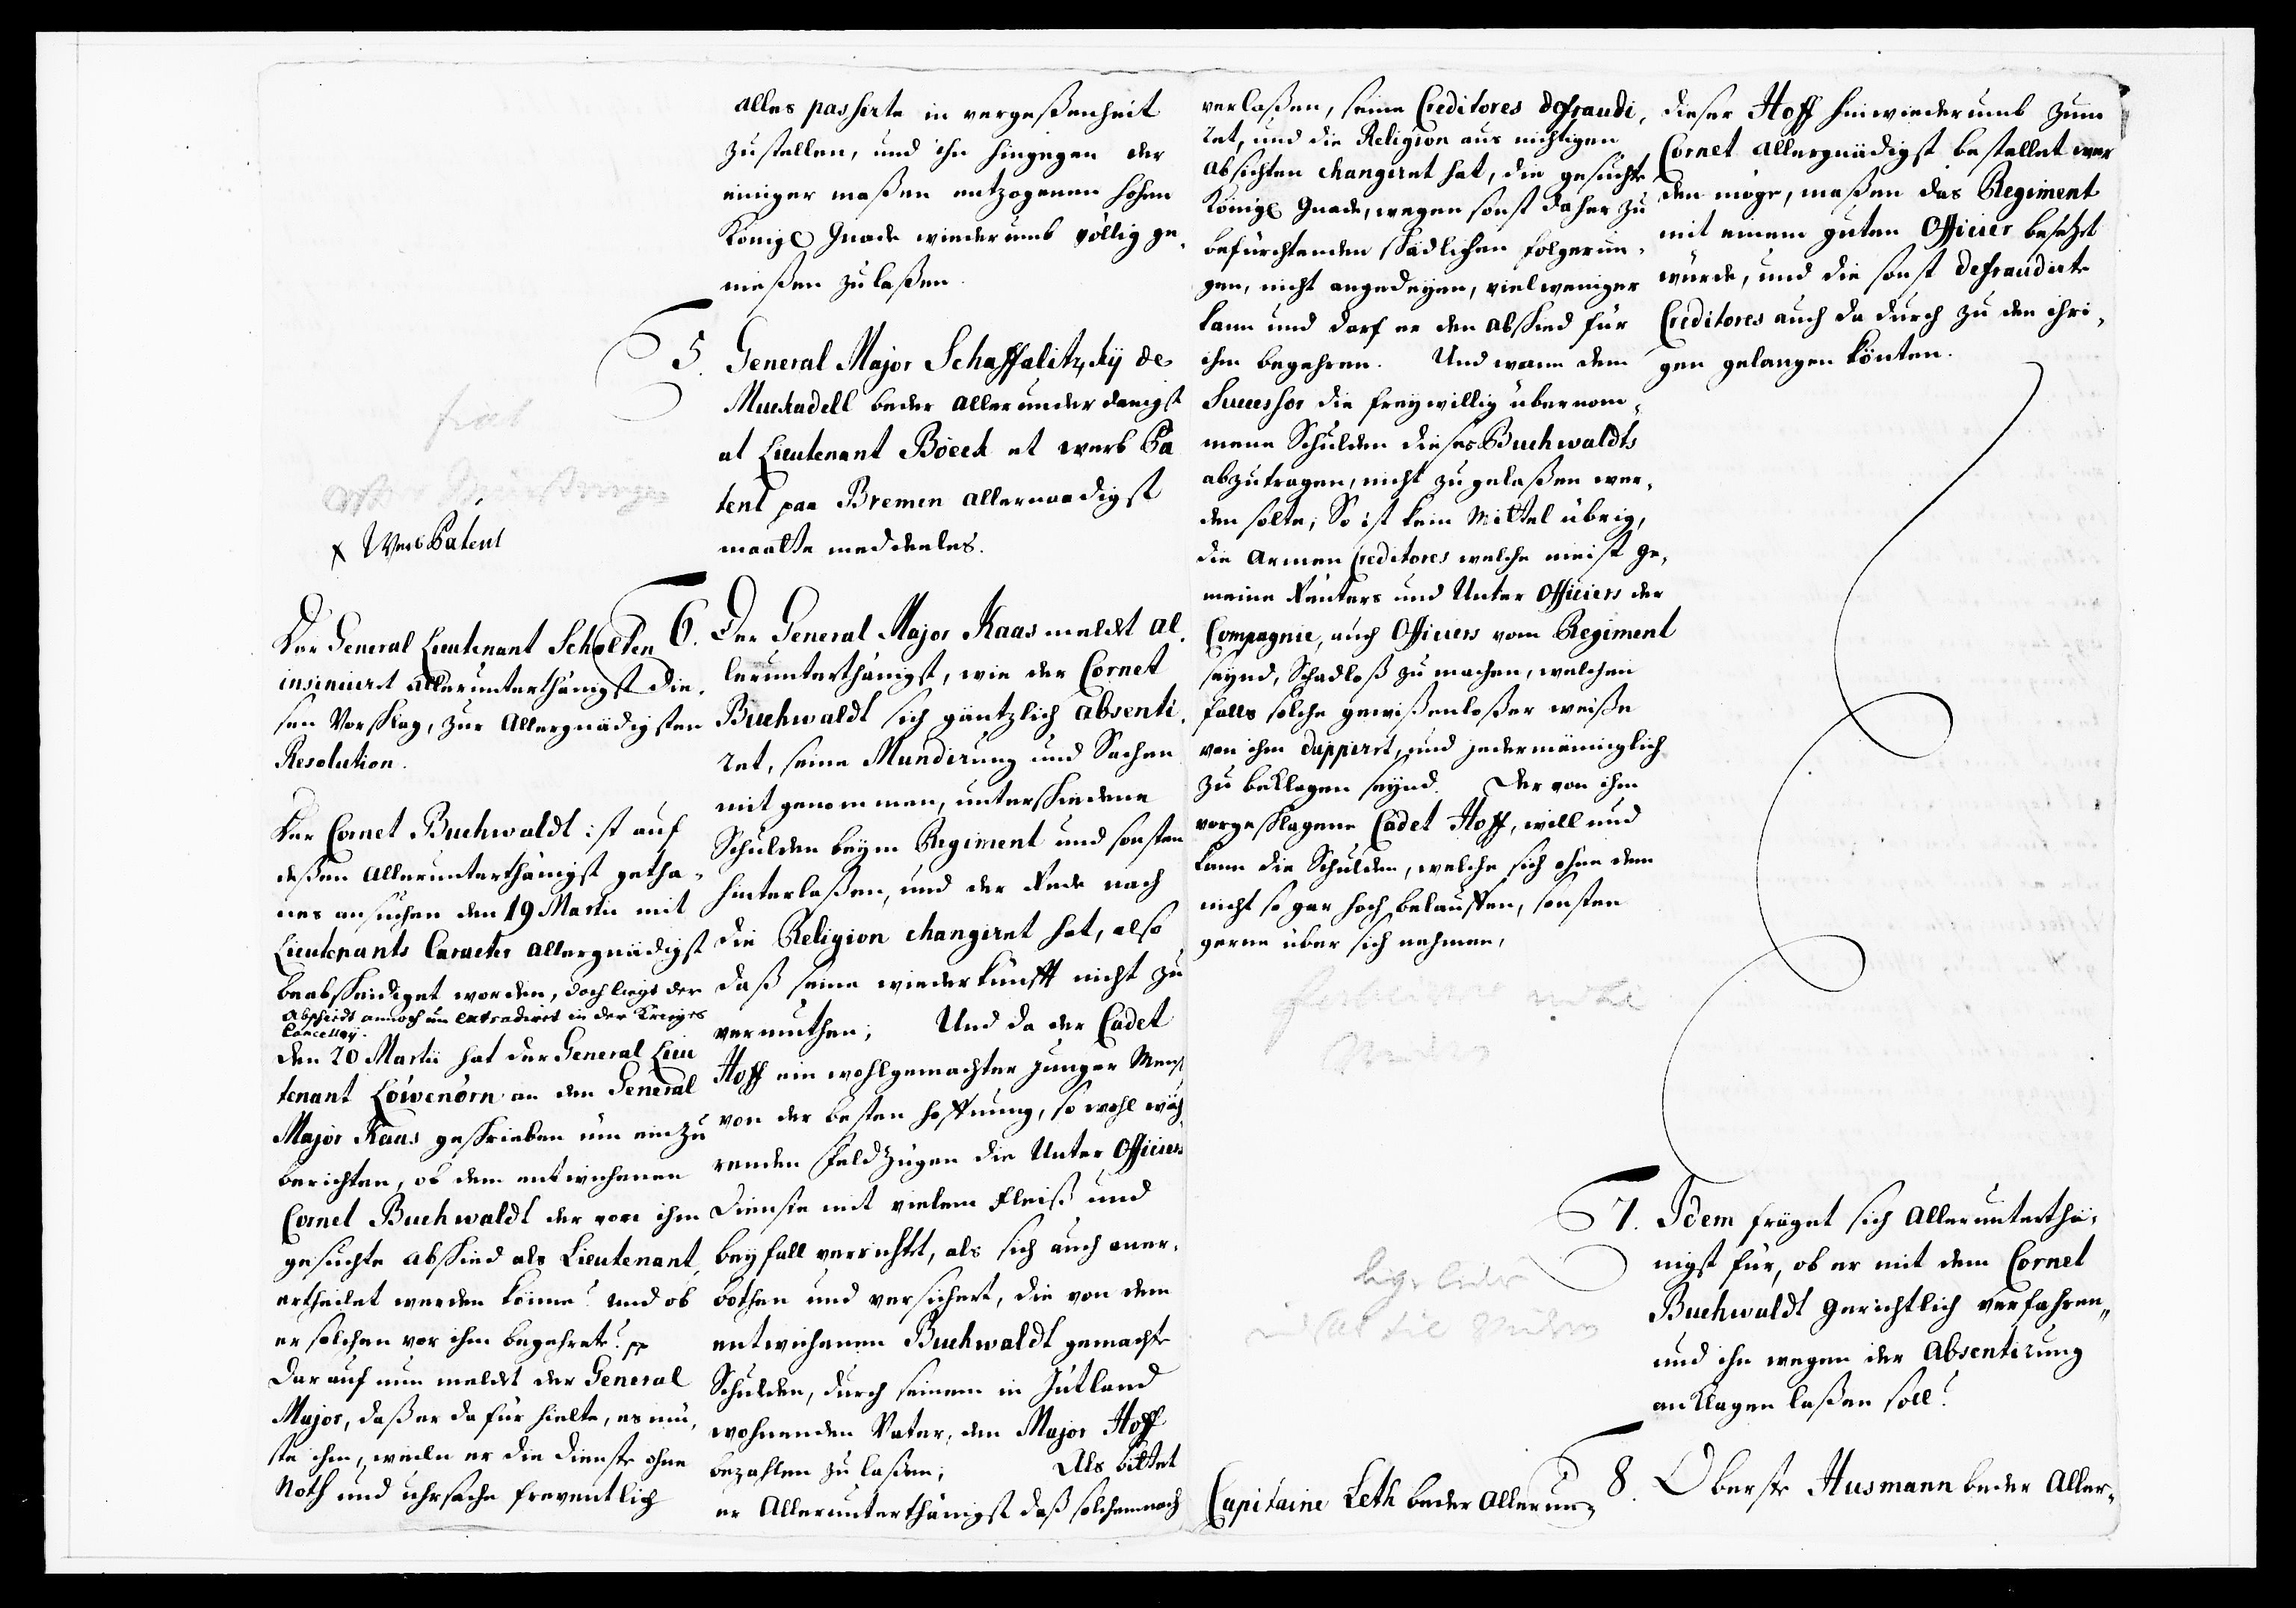 alles passirte in vergeßenheit
zustellen, und ihn hingegen der
einiger maßen entzogenen hohen
Königl Gnade wiederumb völlig ge¬
nießen zulaßen.
5. General Major Schaffalitzkÿ de
Muckadell beder allerunderdanigst
at Lieutenant Böeck et werb Pa
tent paa Bremen allernaadigst
maatte meddeeles.
fiat
x Werb Patent
6. Der General Major Kaas meldt al¬
lerunterthänigst, wie der Cornet
Buchwaldt sich gäntzlich absenti¬
ret, seine Mundirung und Sachen
mit genommen, unterschiedene
Schulden beÿm Regiment und sonsten
hinterlaßen, und der Rede nach
die Religion changiret hat, also
daß seine wiederkunfft nicht zu
vermuthen; Und da der Cadet
Hoff ein wohlgemachter junger Mensch
von der besten hoffnung, so wohl wäh¬
renden Feldzügen die Unter Officiers
Dienste mit vielem Fleiß und
beyfall verrichtet, als sich auch aner¬
bothen und versichert, die von dem
entwichenen Buchwaldt gemachte
Schulden, durch seinem in Jütland
wohnenden Vater, den Major Hoff
bezahlen zu laßen; Als bittet
er Allerunterthänigst daß solchemnach
Der General Lieutenant Scholten
insinuirt allerunterthänigst die¬
sen Vorschlag, zur Allergnädigsten
Resolution.
Der Cornet Buchwaldt ist auf
deßen Allerunterthänigst getha¬
nes ansuchen den 19 Martii mit
Lieutenants Caracter allergnädigst
beabscheidiget worden, doch liegt der
Abscheidt annoch un extradirt in der Krieges
Cancelley.
den 20 Martii hat der General Lieu
tenant Löwenörn an den General
Major Kaas geschrieben um einzu
berichten, ob dem entwichenen
Cornet Buchwaldt der von ihm
gesuchte abschied als Lieutenant,
ertheilet werden könne? und ob
er solchen vor ihm begehrete? pp
Darauf nun meldt der General
Major, daß er dafür hielte, es mü¬
ste ihm, weiln er die Dienste ohne
Noth und uhrsache freventlich
verlaßen, seine Creditores defraudi¬
ret, und die Religion aus nichtigen
absichten changiret hat, die gesuchte
Königl Gnade, wegen sonst daher zu
befürchtenden schädlichen folgerun¬
gen, nicht angedeyen, vielweniger
kann und darf er den abschied für
ihm begehren. Und wann dem
Successor die freywillig übernom¬
mene Schulden dieses Buchwaldts
abzutragen, nicht zugelaßen wer¬
den solte; So ist kein Mittel übrig,
die armen Creditores welche meist ge¬
meine Reuters und Unter Officiers der
Compagnie, auch Officiers vom Regiment
seynd, Schadloß zu machen, welchen
falls solche gewißenloßer weiße
von ihm duppiret, und jedermänniglich
zu beklagen seynd. Der von ihm
vorgeschlagene Cadet Hoff, will und
kann die Schulden, welche sich ohne dem
nicht so gar hoch belauffen, sonsten
gerne über sich nehmen,
dieser Hoff hinwiederumb zum
Cornet allergnädigst bestellet wer
den möge, maßen das Regiment
mit einem guten Officier besetzt
würde, und die sonst defraudirte
Creditores auch da durch zu den ihri¬
gen gelangen könten.
7. Idem fräget sich allerunterthä¬
nigst für, ob er mit dem Cornet
Buchwaldt Gerichtlich verfahren,
und ihn wegen der Absentirung
anklagen laßen soll?
8. Oberste Husmann beder Aller¬
Capitaine Leth beder Allerun¬